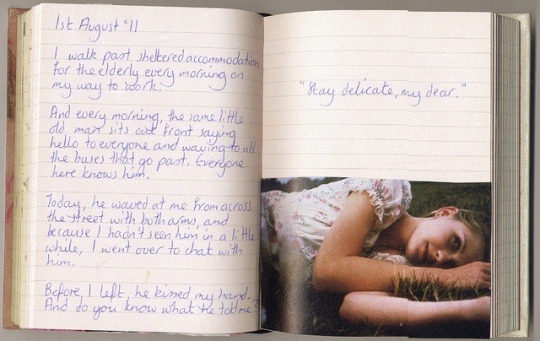 1st August '11
I walk past sheltered accommodation
for the elderly every morning on
my way to work.
And every morning, the same little
old man sits out front saying
hello to everyone and waving to all
the buses that go past. Everyone
here knows him.
Today, he waved at me from across
the street with both arms, and
because I hadn't seen him in a little
while, I went over to chat with
him.
Before I left, he kissed my hand.
And do you know what he told me?
"Stay delicate, my dear."